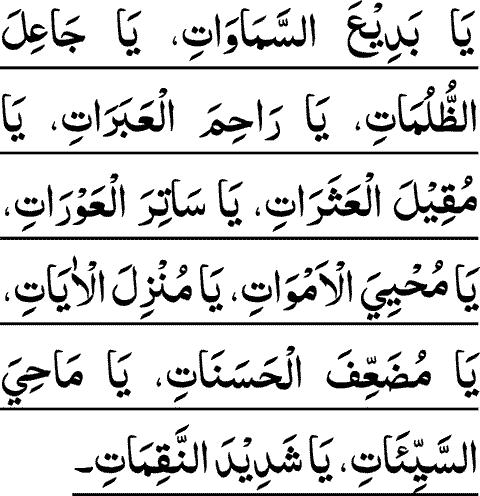 يَا بَدِيْعَ السَّمَاوَاتِ، يَا جَاعِلَ
الظُّلُمَاتِ، يَا رَاحِمَ الْعَبَرَاتِ، يَا
مُقِيْلَ الْعَثَرَاتِ، يَا سَاتِرَ الْعَوْرَاتِ،
يَا مُحْيِيَ الْاَمْوَاتِ، يَا مُنْزِلَ الْاٰيَاتِ،
يَا مُضَعِّفَ الْحَسَنَاتِ، يَا مَاحِيَ
السَّيِّئَاتِ، يَا شَدِيْدَ النَّقِمَاتِ۔